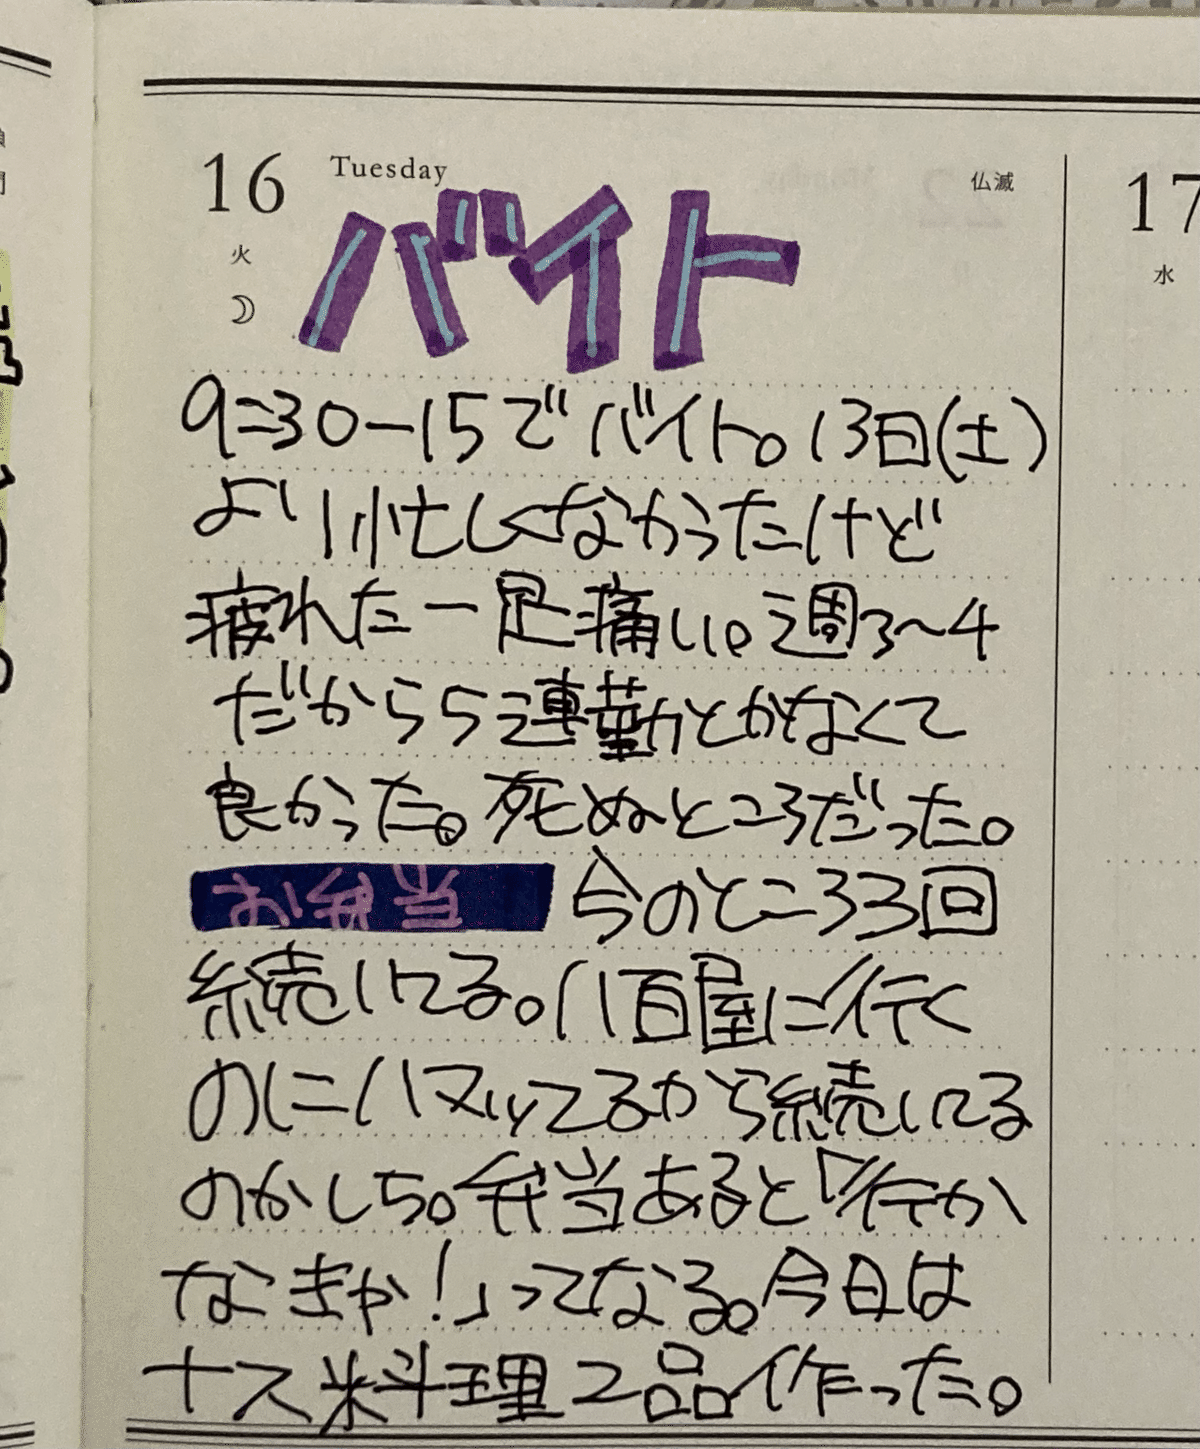 16 Tuesday 仏滅
火
バイト
9:30-15でバイト。13日(土)
より忙しくなかったけど
疲れたー足痛い。週3~4
だから5連勤とかなくて
良かった。死ぬところだった。
お弁当 今のところ3回
続いてる。八百屋に行く
のにハマッてるから続いてる
のかしら。弁当あると「行か
なきゃ!」ってなる。今日は
ナス料理2品作った。
17
水